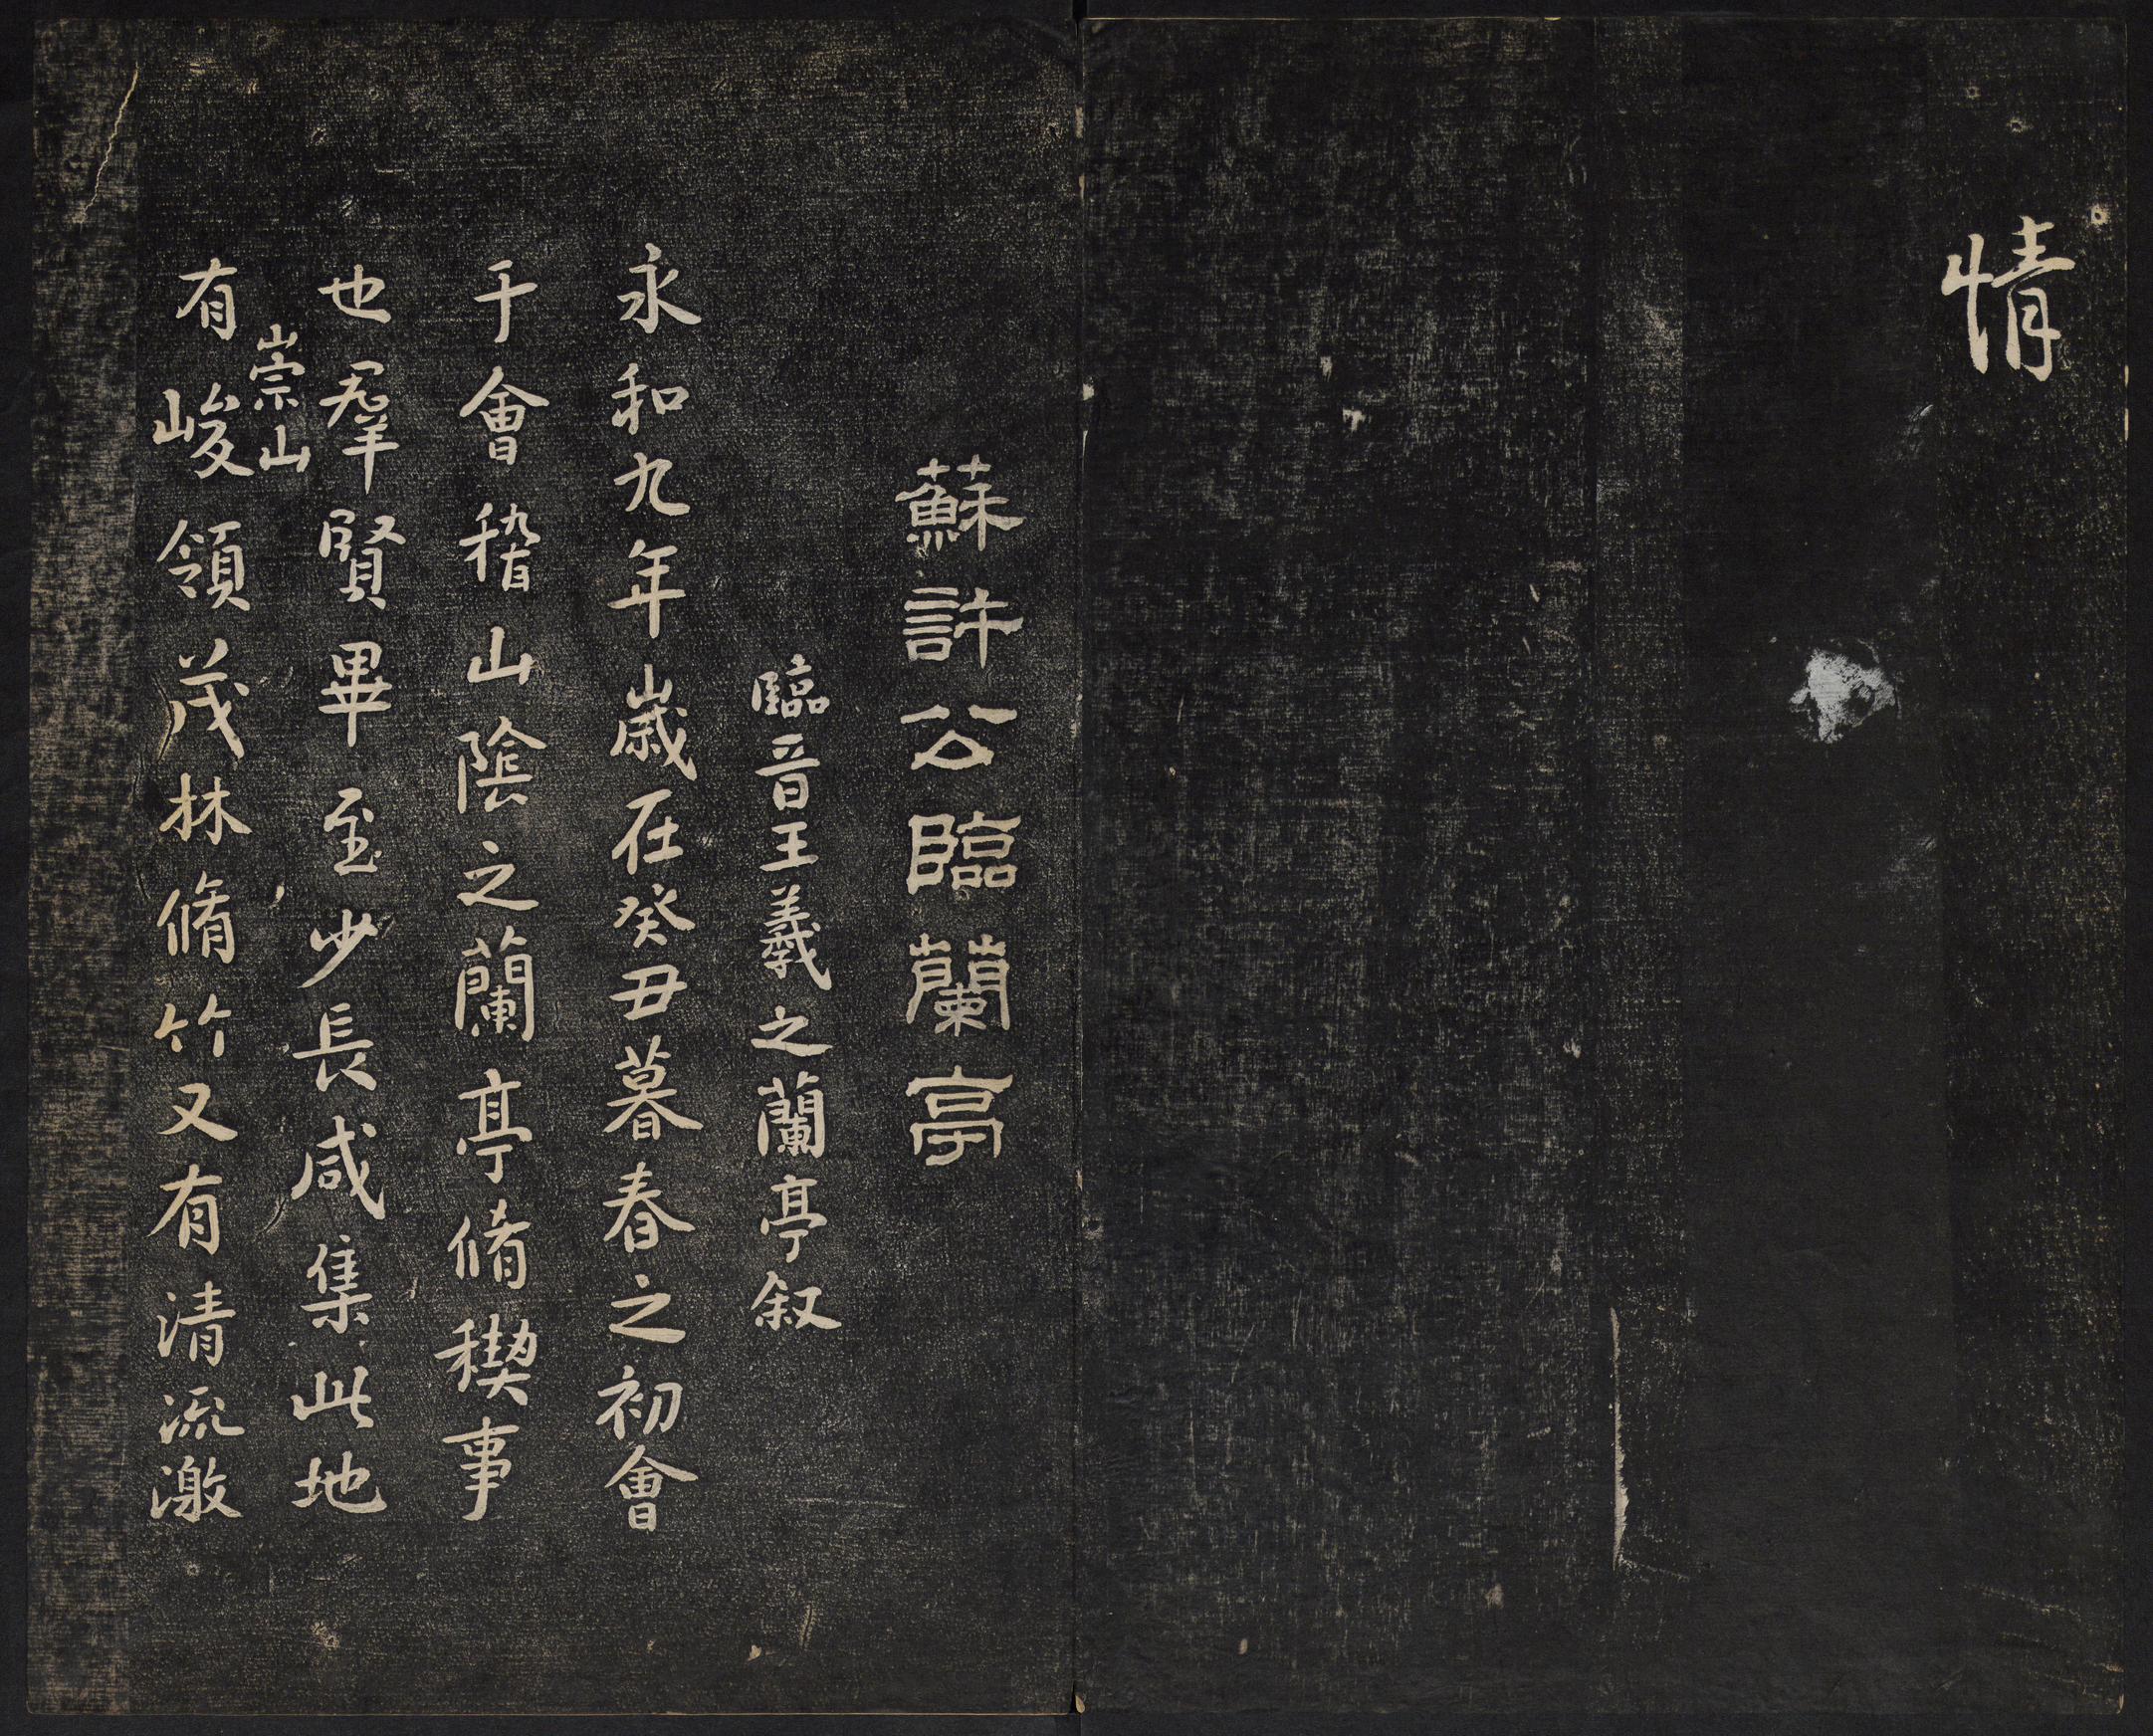 情
蘇許公臨蘭亭
臨晉王羲之蘭亭叙
永和九年歲在癸丑暮春之初會
于會稽山陰之蘭亭脩稧事
也羣賢畢至少長咸集此地
崇山
有峻領茂林脩竹又有清流激